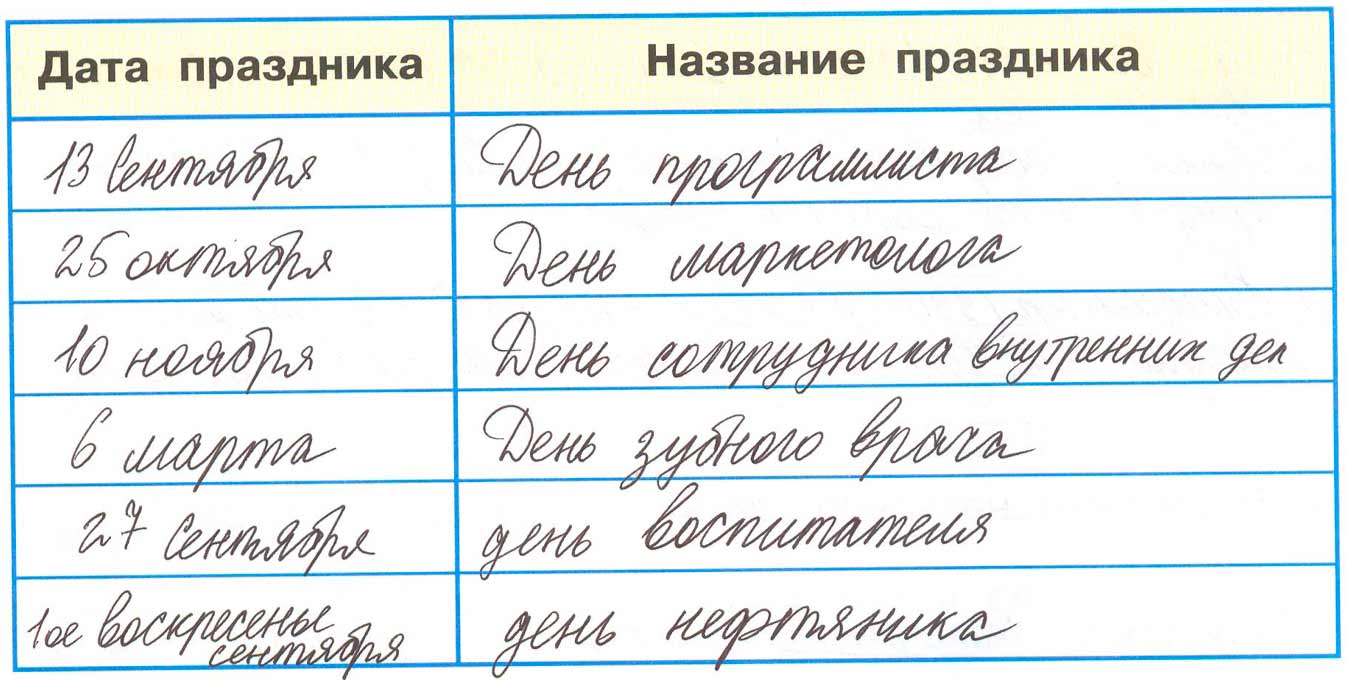 Дата праздника Название праздника
13 Сентября День программиста
25 октября День маркетолога
10 ноября День сотрудника внутренних дел
6 марта День зубного врача
27 Сентября день воспитателя
1ое воскресенье
сентября
день нефтяника